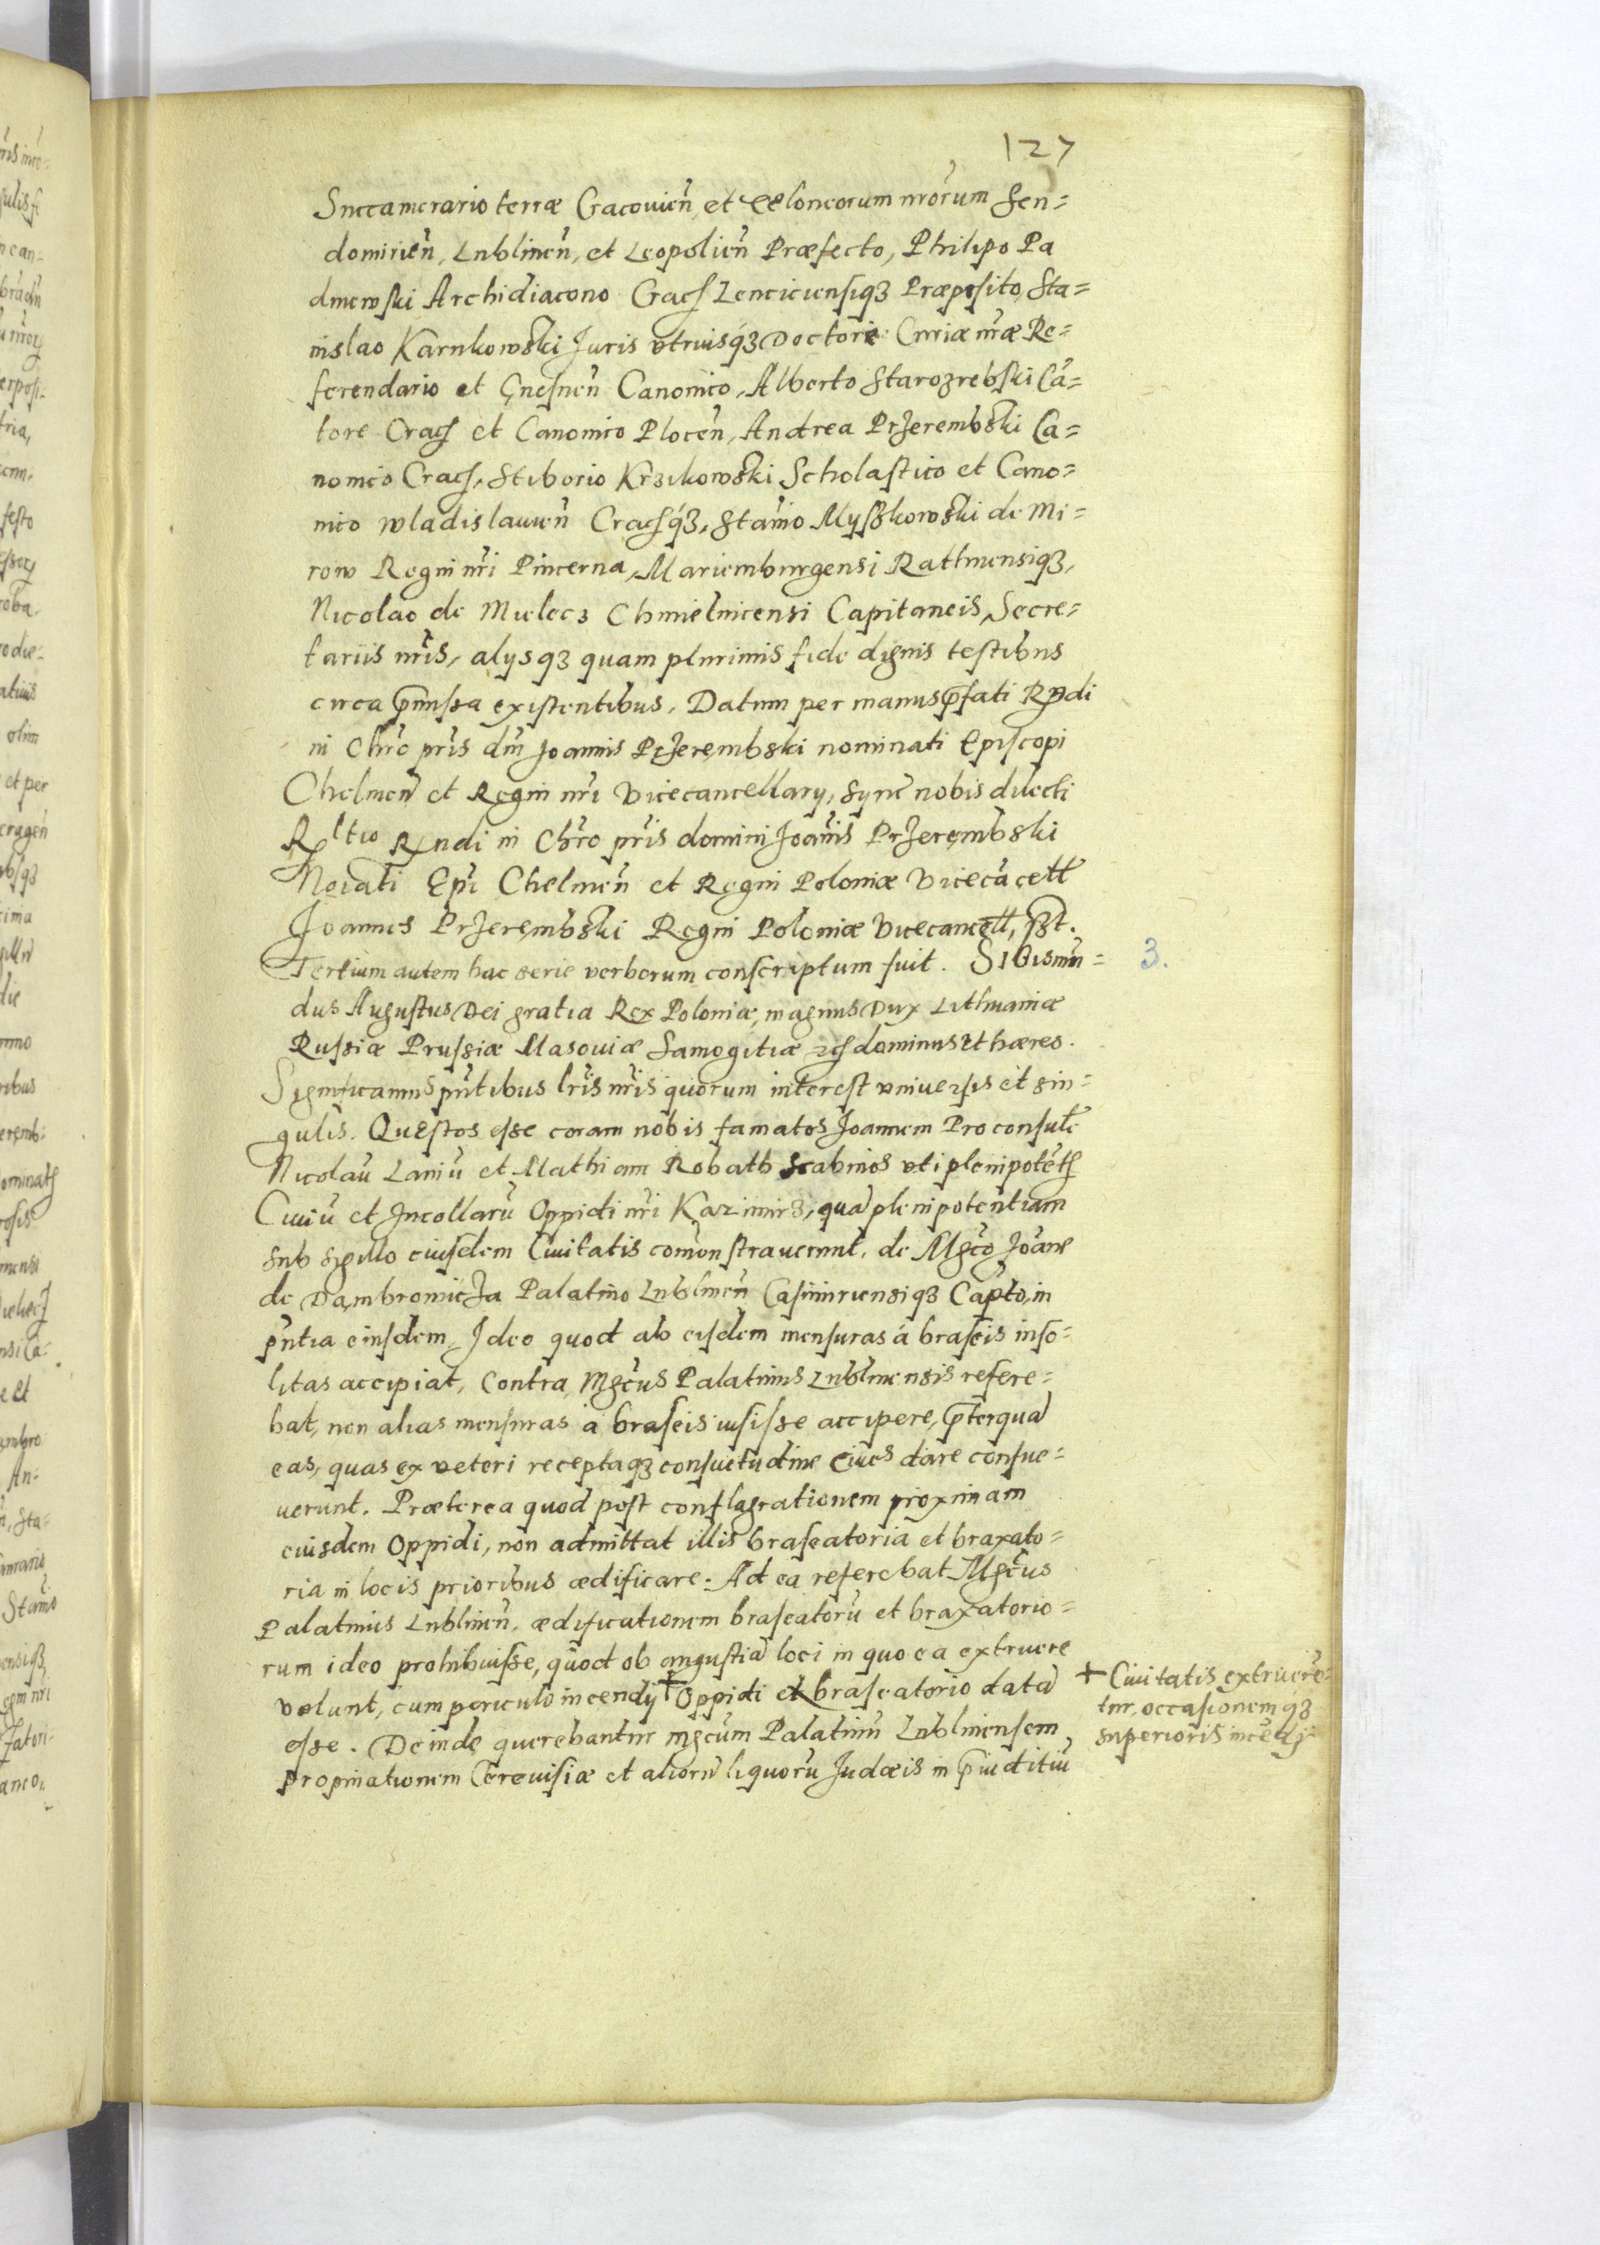 127
Succamerario terræ Cracovień, et Teloneorum nrorum Sen=
domirień, Lublineń, et Leopolień Præfecto, Philipo Pa
dniewski Archidiacono Cracs Lenciciensiq3 Præposito, Sta=
nislao Karnkowski Juris utriusq3 Doctore Curiæ nræ Re=
ferendario et Gnesneń Canonico, Alberto Starozrebski Cā=
tore Cracs et Canonico Ploceń, Andrea Przerembski Ca=
nonico Cracs, Stiborio Krzikowski Scholastico et Cano=
nico wladislavień Cracsq3, Stanio Mysskowski de Mi=
row Regni nri Pincerna, Mariemburgensi Rathnensiq3,
Nicolao de Mielecz Chmielnicensi Capitaneis, Secre=
tariis nris, alysq3 quam plurimis fide dignis testibus
circa pmissa existentibus. Datum per manus pfati Rndi
in Chro pris dni Joannis Przerembski nominati Episcopi
Chelmeń et Regni nri Vicecancellary, syne nobis dilecti
Rltio Rndi in Chro pris domini Joanis Przerembski
Noiati Epi Chelmeń et Regni Poloniæ Vicecācell
Joannes Przerembski Regni Poloniæ Vicecancell, sst.
Tertium autem hac serie verborum conscriptum fuit. Sigismū= 3.
dus Augustus Dei gratia Rex Poloniæ, magnus Dux Lithuaniæ
Russiæ Prussiæ Masoviæ Samogitiæ etcs dominus et hæres.
Significamus pntibus lris nris quorum interest universis et sin=
gulis. Questos esse coram nobis famatos Joannem Proconsule
Nicolaū Laniū et Mathiam Robath scabinos uti plenipotēts
Civiū et Incollarū Oppidi nri Kazimirz, quā plenipotentiam
sub sigillo eiusdem Civitatis comonstraverunt, de Mgco Joāne
de Dambrowicza Palatino Lublineń Casimiriensiq3 Capto, in
pntia eiusdem, Ideo quod ab eisdem mensuras á braseis inso=
litas accipiat, Contra Mgcus Palatinus Lublinensis refere=
bat, non alias mensuras a braseis iusisse accipere, pterquā
eas, quas ex veteri receptaq3 consuetudine cives dare consue=
verunt. Præterea quod post conflagrationem proximam
eiusdem Oppidi, non admittat illis braseatoria et braxato=
ria in locis prioribus ædificare. Ad ea referebat Mgcus
Palatinus Lublineń, ædificationem braseatorū et braxatorio=
rum ideo prohibuisse, quod ob angustiā loci in quo ea extruere
volunt, cum periculo incendy + Oppidi et braseatorio datā
esse. Deinde querebantur mgcum Palatinū Lublinensem
propinationem Cerevisiæ et aliorū liquorū Judæis in piuditiū
+ Civitatis extruere=
tur, occasionemq3
superioris incēdy